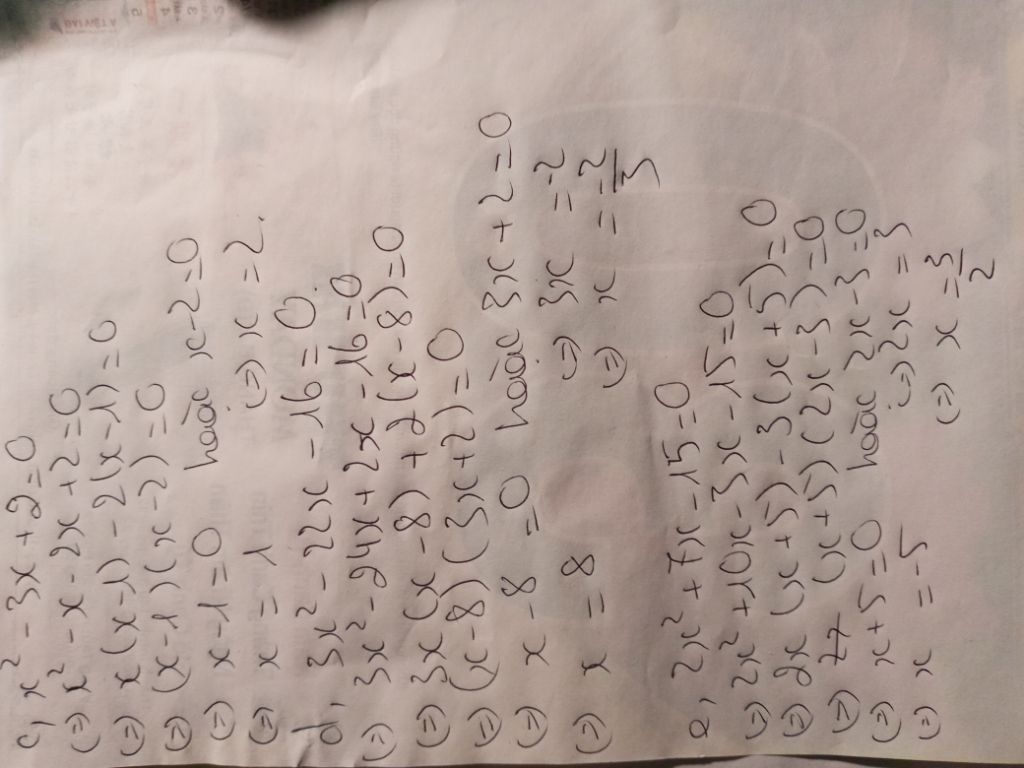 c, x² - 3x + 2 = 0
(=) x² - x - 2x + 2 = 0
(=) x(x-1) - 2(x-1) = 0
(=) (x-1)(x-2) = 0
(=) x-1 = 0 hoặc x-2 = 0
(=) x = 1 (=) x = 2.
d, 3x² - 22x - 16 = 0.
(=) 3x² - 24x + 2x - 16 = 0
(=) 3x(x-8) + 2(x-8) = 0
(=) (x-8)(3x+2) = 0
(=) x-8 = 0 hoặc 3x+2 = 0
(=) 3x = -2
(=) x = 8 (=) x = -2/3
2x² + 7x - 15 = 0
(=) 2x² + 10x - 3x - 15 = 0
(=) 2x(x+5) - 3(x+5) = 0
(=) (x+5)(2x-3) = 0
(=) x+5 = 0 hoặc 2x-3 = 0
(=) x = -5 (=) 2x = 3
(=) x = 3/2